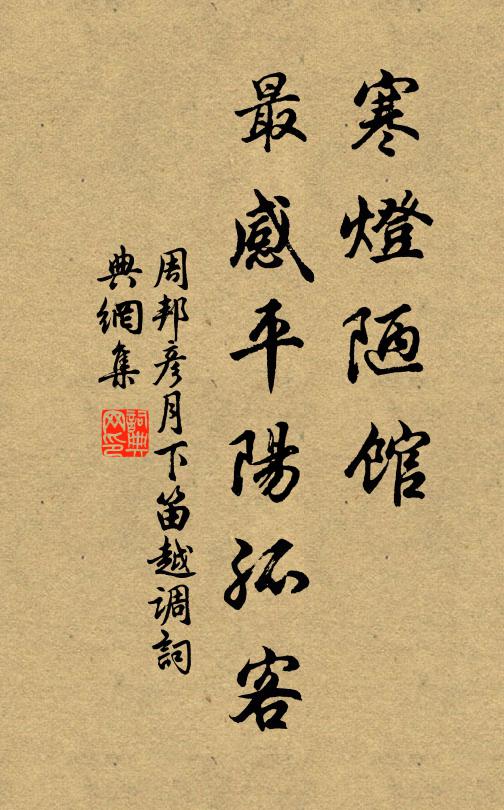 寒燈陋館
最感平陽孤客
周邦彦月下笛越调詞
典網集
詞典网印